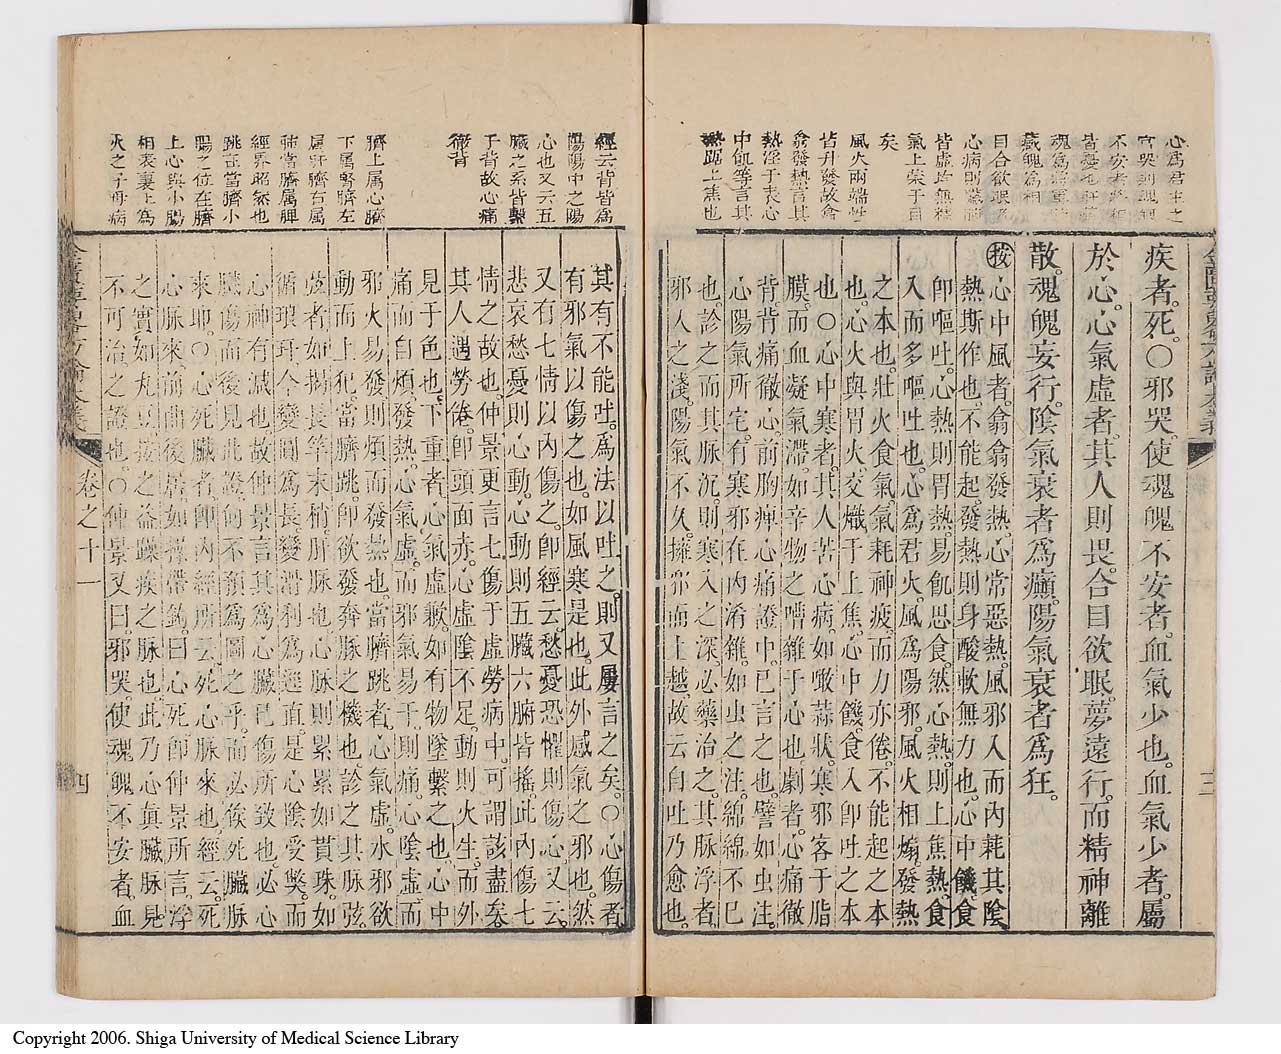 心爲君主之
不安者
疾者。死。〇邪哭。使魂魄不安者。血氣少也。血氣少者。屬
於心。心氣虛者。其人則畏。合目欲眠。夢遠行。而精神離
散。魂魄妄行。陰氣衰者爲癲。陽氣衰者爲狂。
目合欲眠者
心病則
皆虛均無精
氣上榮于目
矣
風火兩端
皆升發故
翕發熱言其
熱淫于表心
中飢等言其
熱踞上焦也
㊞按心中風者。翕翕發熱。心常惡熱。風邪入而內耗其陰
熱斯作也。不能起。發熱則身酸軟無力也。心中饑。食
卽嘔吐。心熱則胃熱。易飢思食。然心熱。則上焦熱。食
入而多嘔吐也。心爲君火。風爲陽邪。風火相煽。發熱
之本也。壯火食氣。氣耗神疲。而力亦倦。不能起之本
也。心火與胃火交熾。于上焦。心中饑。食入卽吐之本
也。〇心中寒者。其人苦心病。如噉蒜狀。寒邪客于脂
膜。而血凝氣滯。如辛物之嘈雜于心也。劇者。心痛徹
背。背痛徹心。前胸痺心痛證中。已言之也。譬如虫注。
心陽氣所宅。有寒邪在內淆雜。如虫之注。綿綿不已
也。診之而其脉沉。則寒入之深。必藥治之。其脉浮者。
邪入之淺。陽氣不久擁邪而上越。故云自吐乃愈也。
經云背皆爲
陽陽中之陽
心也又云五
臟之系皆繫
于背故心痛
徹背
臍上屬心臍
下屬腎臍左
屬肝臍右屬
肺當臍屬脾
經界昭然也
跳言當臍小
腸之位在臍
上心與小腸
相表裏上爲
火之子母病
其有不能吐。爲法以吐之。則又屢言之矣。〇心傷者
有邪氣以傷之也。如風寒是也。此外感氣之邪也。然
又有七情以內傷之。卽經云。愁憂恐懼則傷心。又云。
悲哀愁憂則心動。心動則五臟六腑皆搖。此內傷七
情之故也。仲景更言七傷于虛勞病中。可謂該盡矣。
其人遇勞倦。卽頭面赤。心虛陰不足。動則火生。而外
見于色也。下重者。心氣虛歉。如有物墜繫之也。心中
痛而自煩。發熱。心氣虛。而邪氣易干。則痛。心陰虛而
邪火易發。則煩而發熱也。當臍跳者。心氣虛。水邪欲
動而上犯。當臍跳。卽欲發奔豚之機也。診之其脉弦。
弦者如揭長竿末梢。肝脉也。心脉則累累如貫珠。如
循琅玕。今變圓爲長。變滑利爲逕直。是心陰受獘。而
心神有減也。故仲景言其爲心臟已傷所致也。必心
臟傷而後見此證。何不預爲圖之乎。而必俟死臟脉
來耶。〇心死臟者。卽內經所云。死心脉來也。經云。死
心脉來。前曲後居。如操帶鉤。曰心死。卽仲景所言。浮
之實。如丸豆。按之益躁疾之脉也。此乃心眞臟脉見。
不可治之證也。〇仲景又曰。邪哭。使魂魄不安者。血
卷之十一
四
Copyright 2006. Shiga University of Medical Science Library